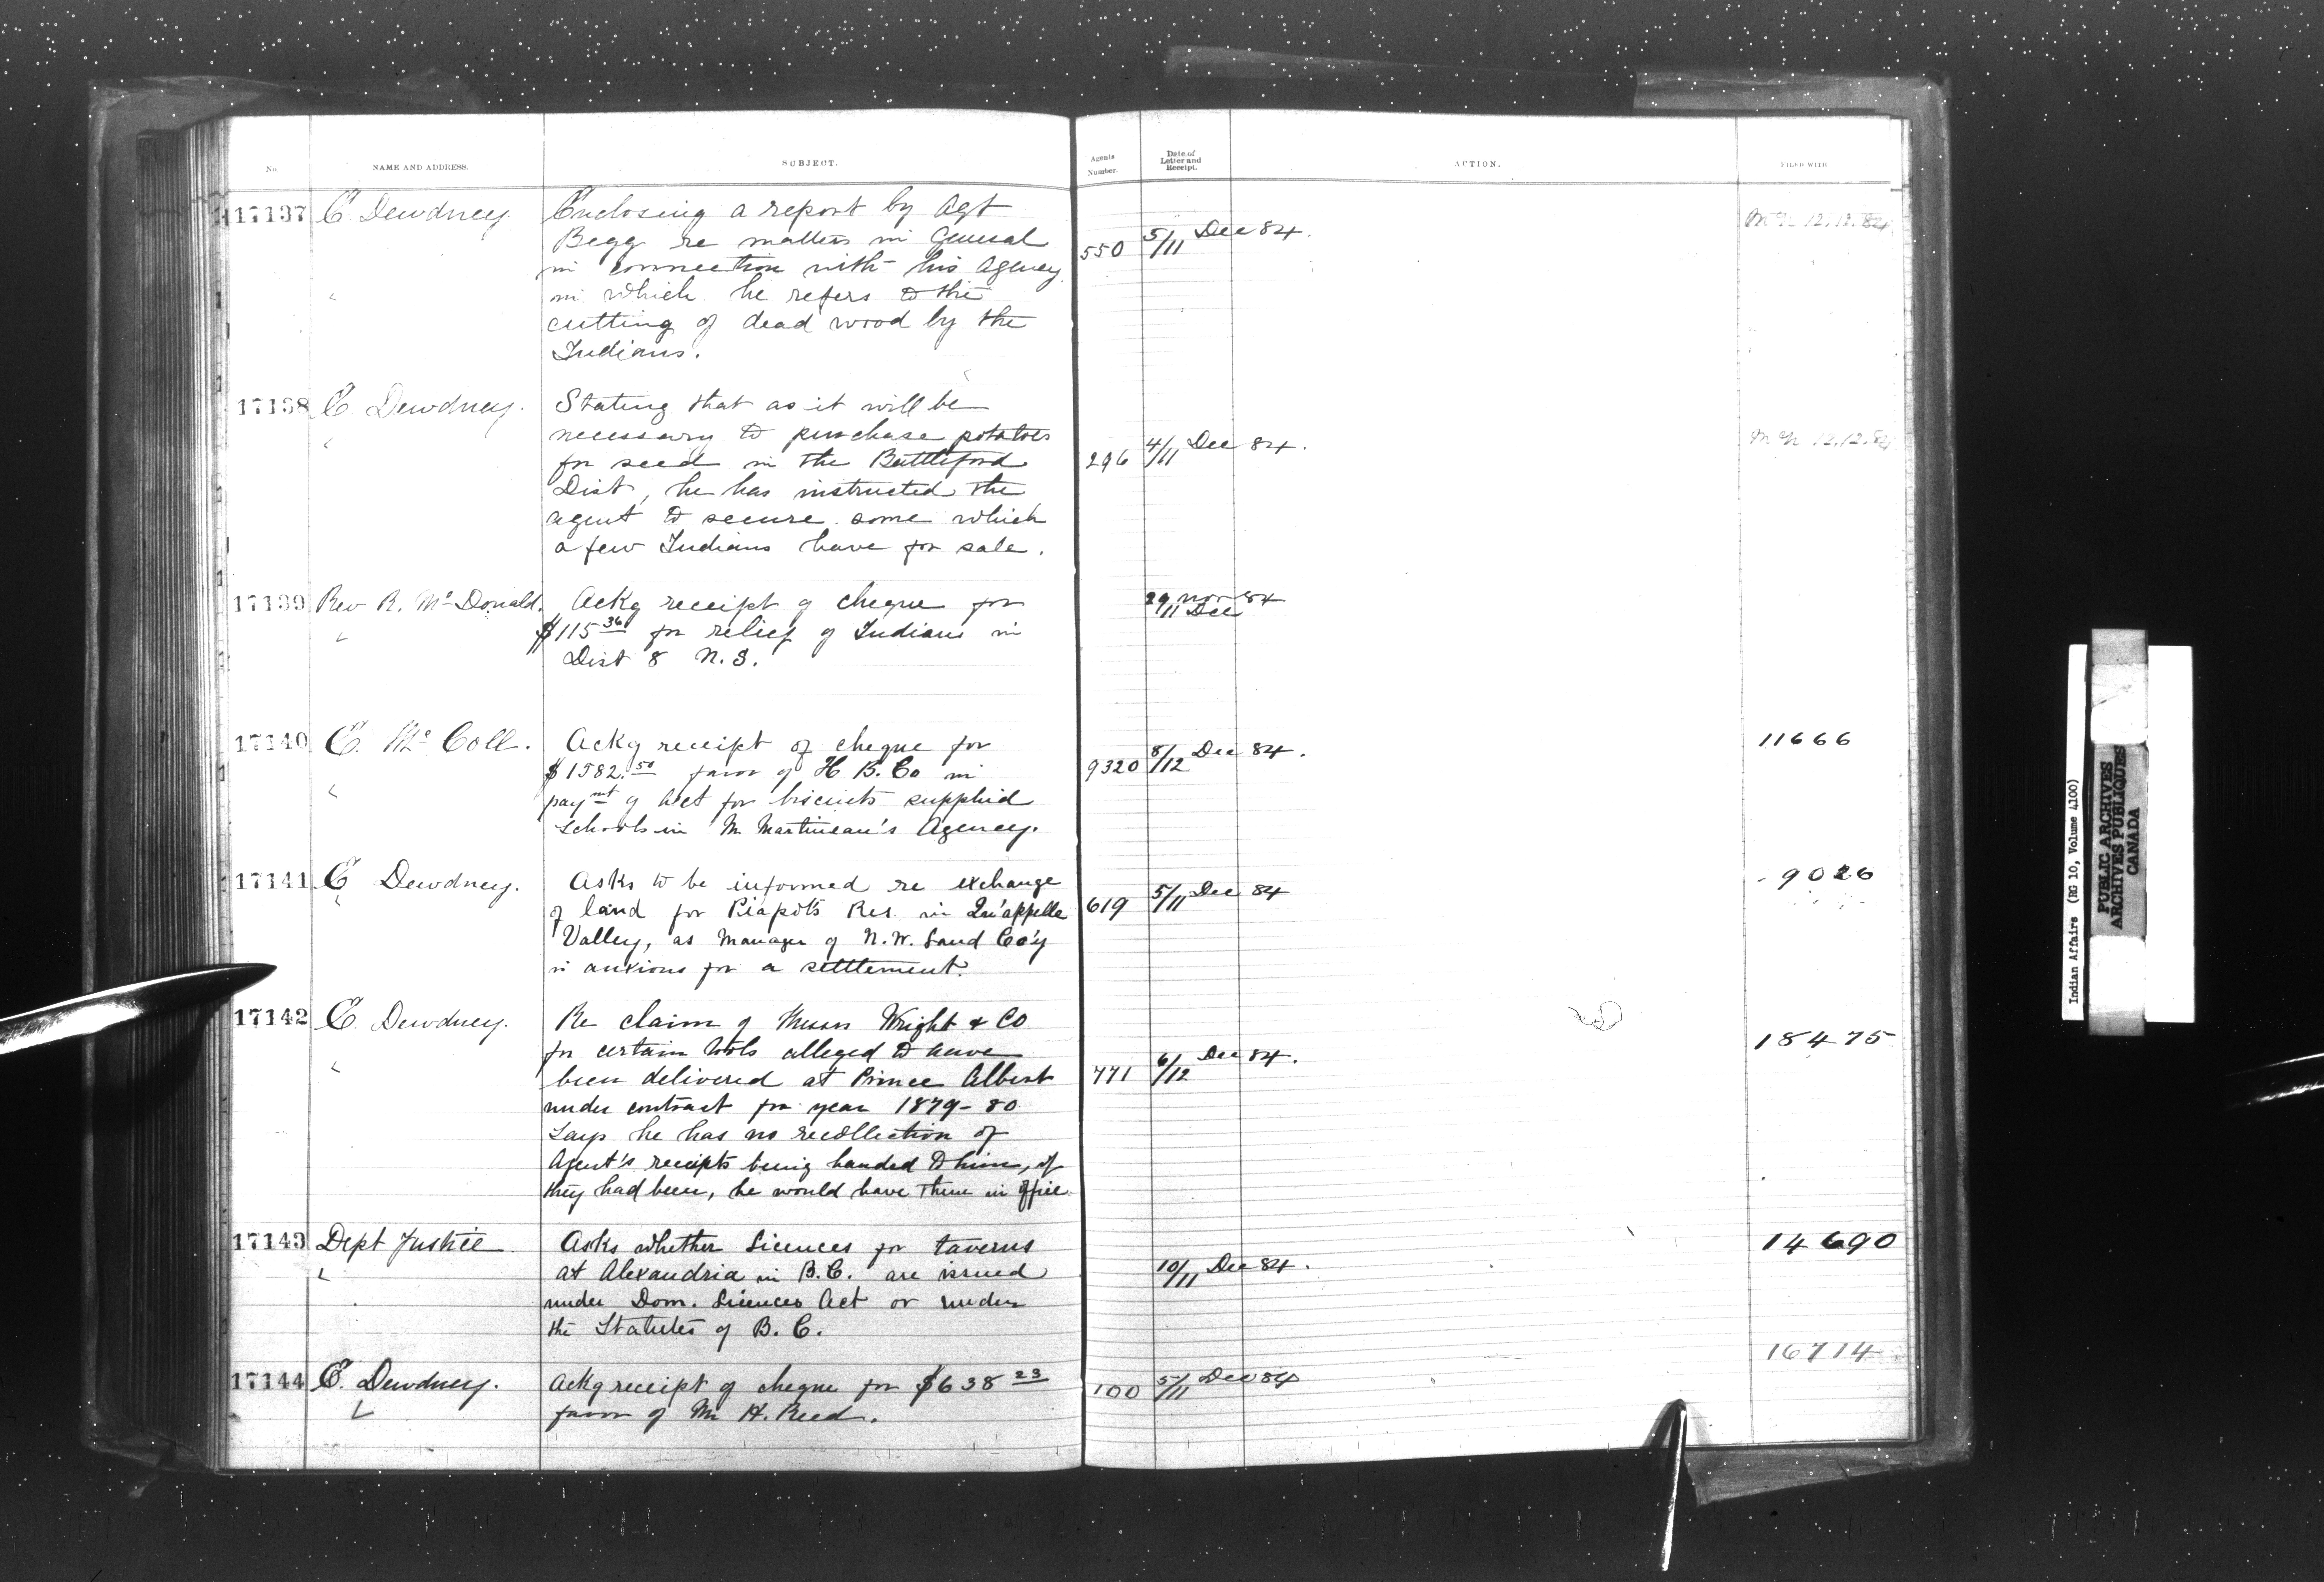 No.
NAME AND ADDRESS.
SUBJECT.
Agents Number.
Date of Letter and Receipt.
ACTION.
FILED WITH
17137 E. Dewdney. Enclosing a report by Agt
Begg re matters in General
in connection with his Agency
in which he refers to the
cutting of dead wood by the
Indians.
550 5/11 Dec 84.
12.12.84
17138 E. Dewdney. Stating that as it will be
necessary to purchase potatoes
for seed in the Battleford
Dist, he has instructed the
agent to secure some which
a few Indians have for sale.
296 4/11 Dec 84.
12.12.84
17139 Rev R. McDonald. Ackg receipt of cheque for
$115 36 for relief of Indians in
Dist 8 N.S.
29 Nov 84
/11 Dec
17140 E. McColl. Ackg receipt of cheque for
$1582.50 favor of H. B. Co in
paymt of Acct for biscuits supplied
Schools in Mr Martineau's Agency.
9320 8/12 Dec 84.
11666
17141 E Dewdney. Asks to be informed re exchange
of land for Piapot's Res. in Qu'appelle
Valley, as Manager of N.W. Land Co'y
is anxious for a settlement.
619 5/11 Dec 84
9026
17142 E. Dewdney. Re claim of Messrs Wright & Co
for certain tools alleged to have
been delivered at Prince Albert
under contract for year 1879-80.
Says he has no recollection of
Agent's receipts being handed to him, if
they had been, he would have them in office
771 6/12 Dec 84.
18475
17143 Dept Justice Asks whether Licences for taverns
at Alexandria in B.C. are issued
under Dom. Licences Act or under
the Statutes of B.C.
10/11 Dec 84.
14690
17144 E. Dewdney. Ackg receipt of cheque for $638 23
favor of Mr H. Reed.
100 5/11 Dec 84
16714
Indian Affairs (RG 10, Volume 4100)
PUBLIC ARCHIVES
ARCHIVES PUBLIQUES
CANADA